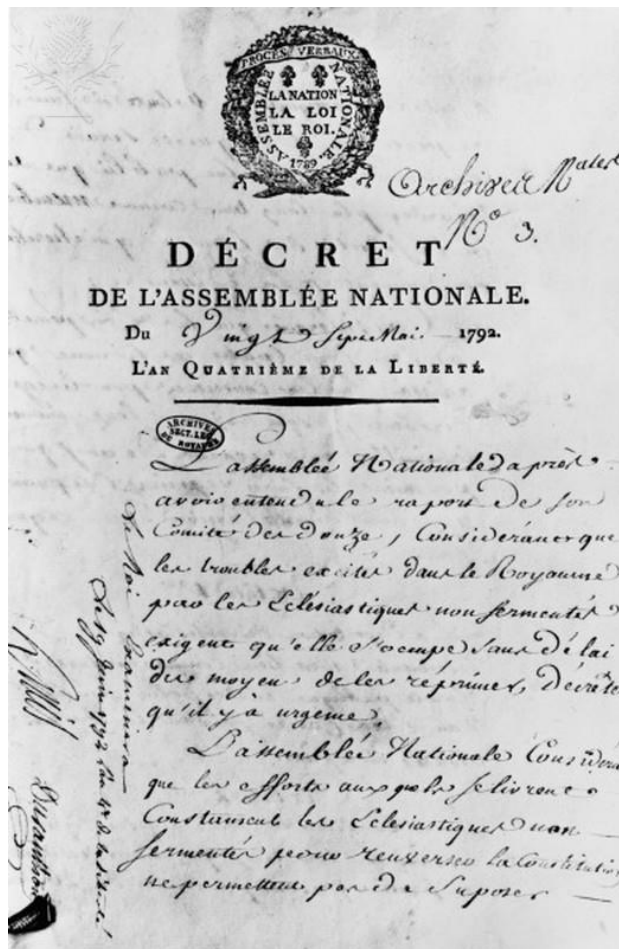 PROCÈS VERBAUX
ASSEMBLÉE NATIONALE.
LA NATION
LA LOI
LE ROI.
1789
Archives Nales
No 3.
DÉCRET
DE L'ASSEMBLÉE NATIONALE.
Du Vingt Sept Mai 1792.
L'AN QUATRIÈME DE LA LIBERTÉ.
ARCHIVES
SECT. LEG.
DU ROYAUME
L'assemblée Nationale après
avoir entendu le raport de son
Comité des douze, Considérant que
les troubles excités dans le Royaume
par les Eclésiastiques non sermentés
exigent qu'elle s'occupe sans délai
des moyen de les réprimer, décrète
qu'il y à urgence
L'assemblée Nationale Considéra
que les efforts auxquels se livrent
Constament les Eclésiastiques non
sermentés pour renverser la Constitution
ne permettent pas de Suposer
Le Roi Examinera
Le 19 Juin 1792 l'an 4e de la liberté
Louis
Duranthon